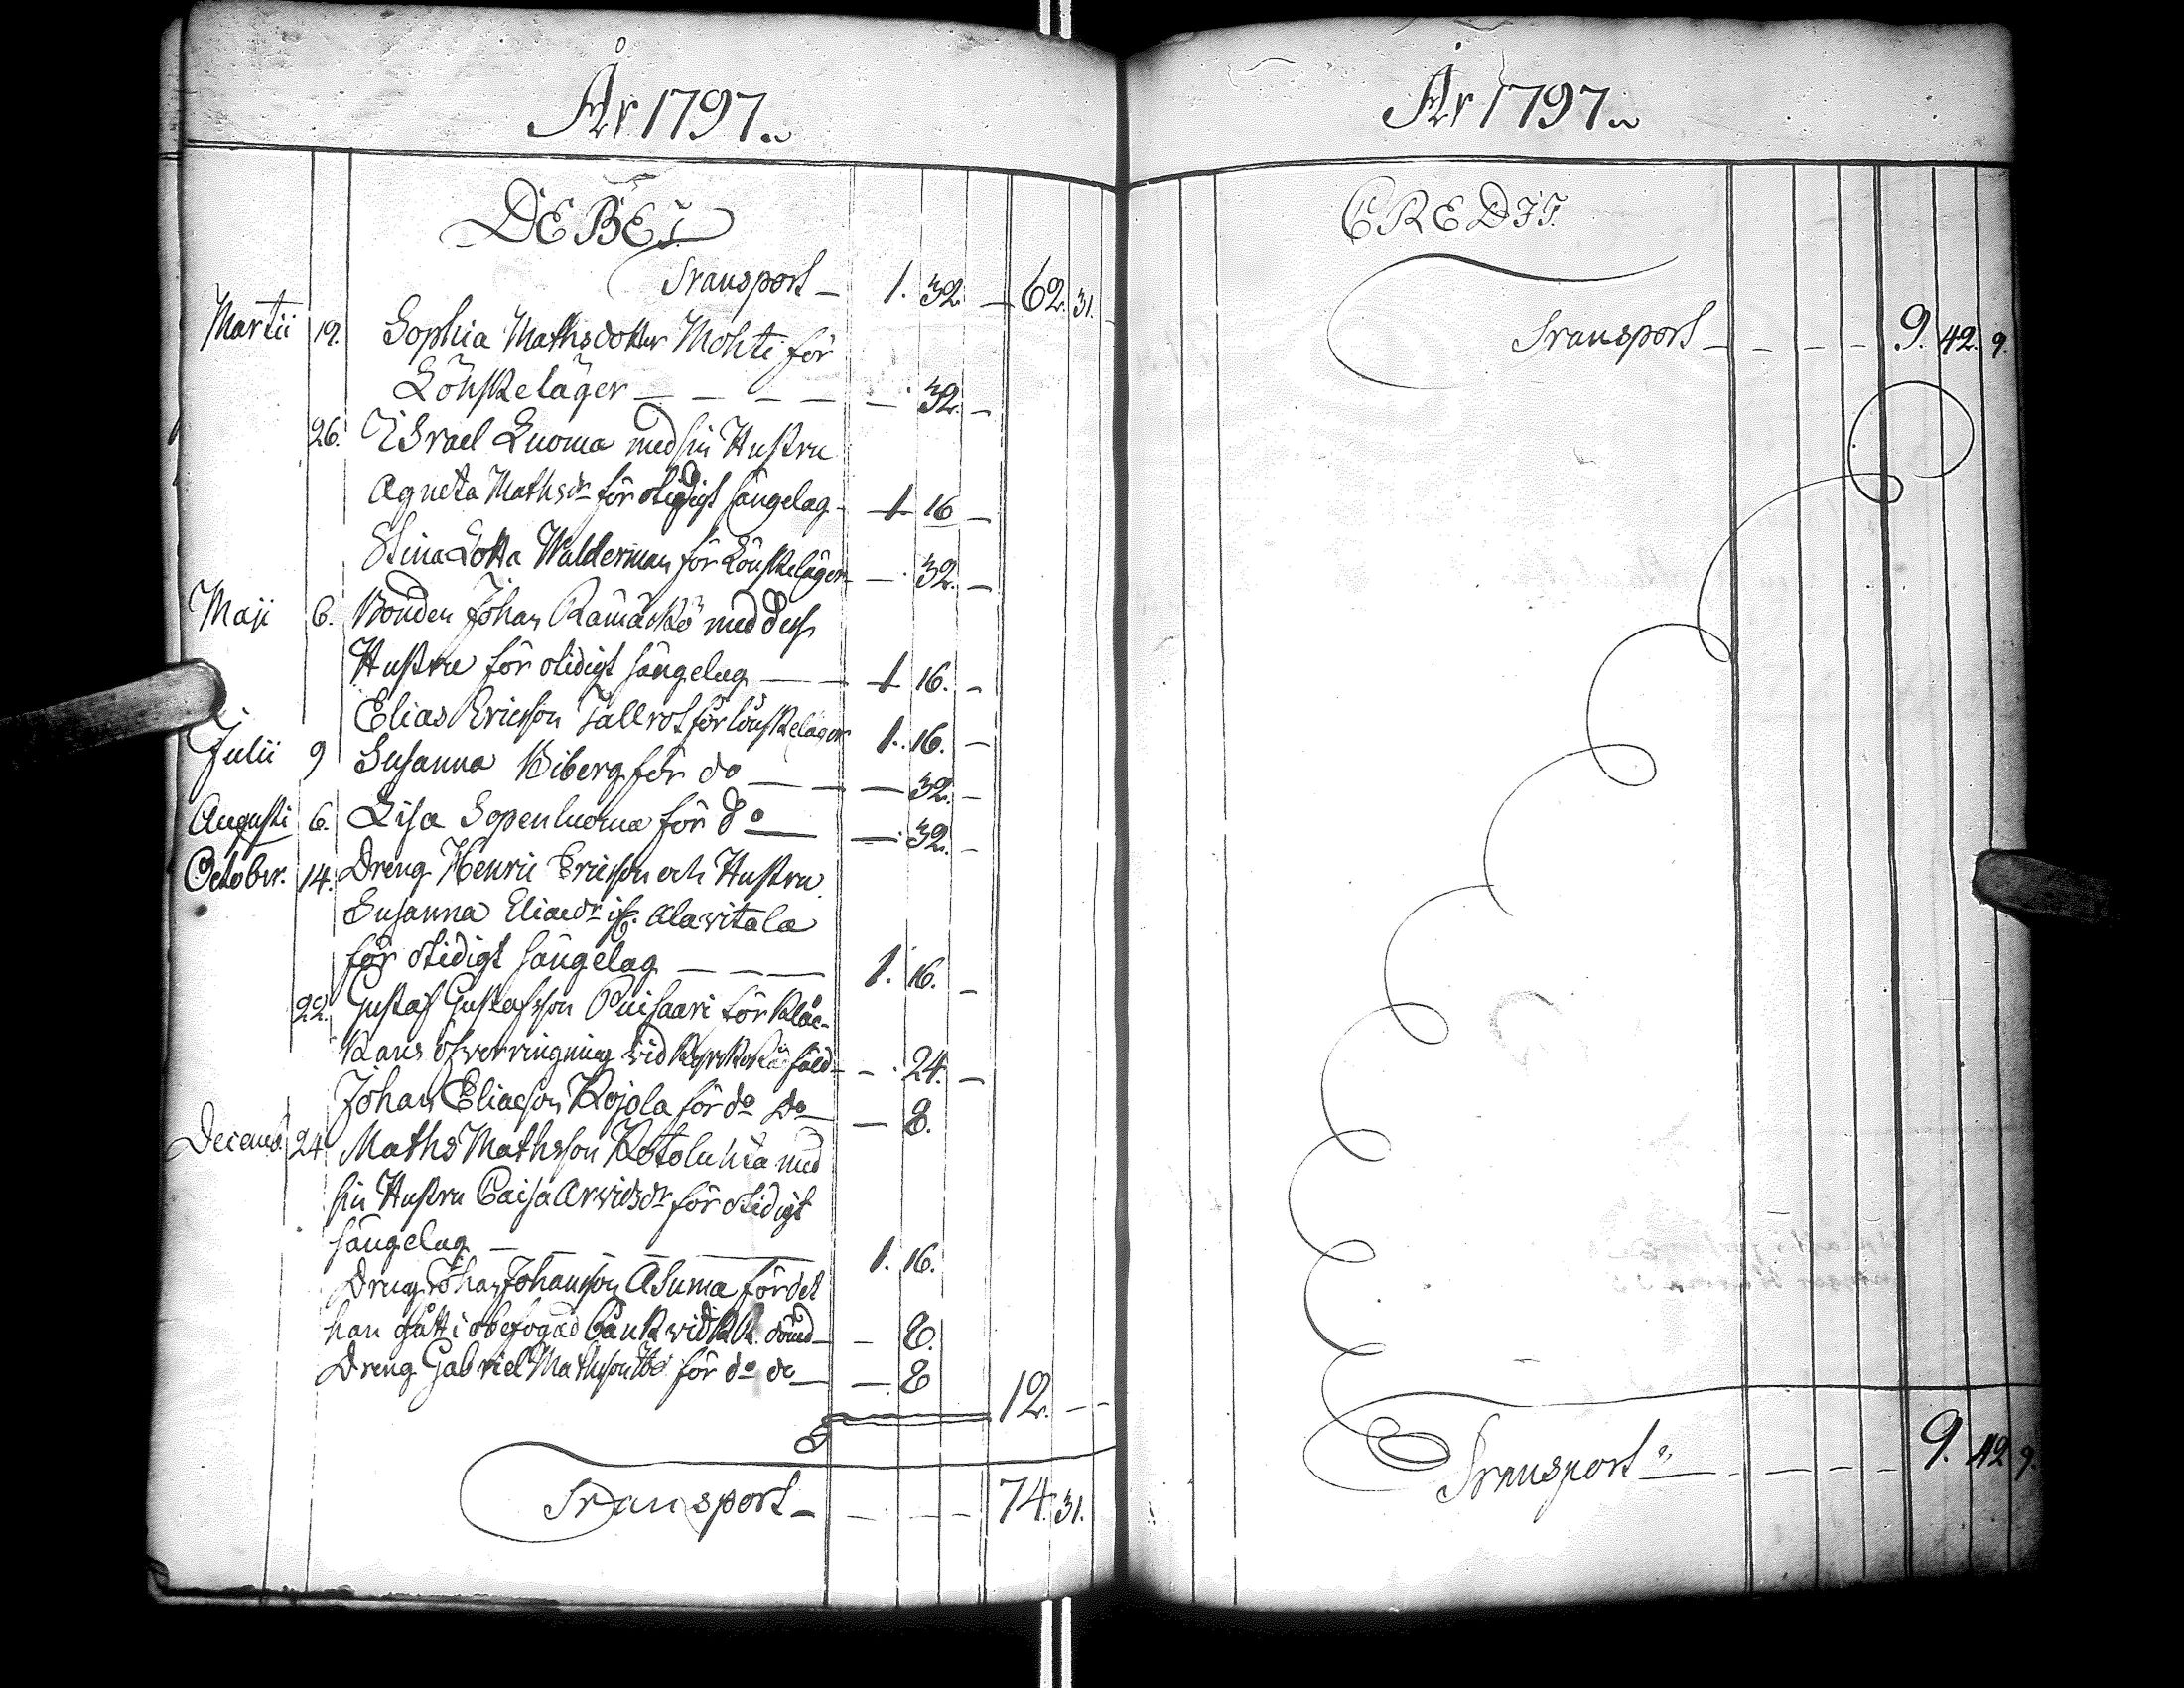 År 1797.
DEBET
Transport - 1. 32 - 62. 31. -
Martii 19. Sophia Mathsdotter Mohti för
Lönskeläger - - - - - 32. -
26. Israel Luoma med sin Hustru
Agneta Mathsdr för otidigt sängelag - 1 16 -
Stina Lotta Walderman för Lönskeläger - 32. -
Maji 6. Bonden Johan Ramäckö med dess
Hustru för otidigt sängelag - 1 16. -
Elias Ericsson Tallrot för lönskeläger 1. 16. -
Julii 9 Susanna Biberg för do - - 32. -
Augusti 6. Lisa Sopenluoma för do - 32. -
October. 14. Dreng Henric Ericsson och Hustru
Susanna Eliaedr if. Alavitala
för otidigt sängelag - - - 1. 16. -
22. Gustaf Gustafsson Puisaari för kläc-
kans öfverringning vid - - 24. -
Johan Eliaesson Kojola för do do - 8.
Decemb. 24 Maths Mathsson Kotoluhta med
sin Hustru Caisa Arvidsdr för otidigt
sängelag - 1. 16.
Dreng Johan Johansson Asuma för det
han gått i obefogad bänk vid KR. dömd - - 8.
Dreng Gabriel Mathsson för do do - - 8
12. - -
Transport - - - - - 74. 31.
År 1797.
CREDIT.
Transport - - - - 9. 42. 9.
Transport - - - - - 9. 42 9.